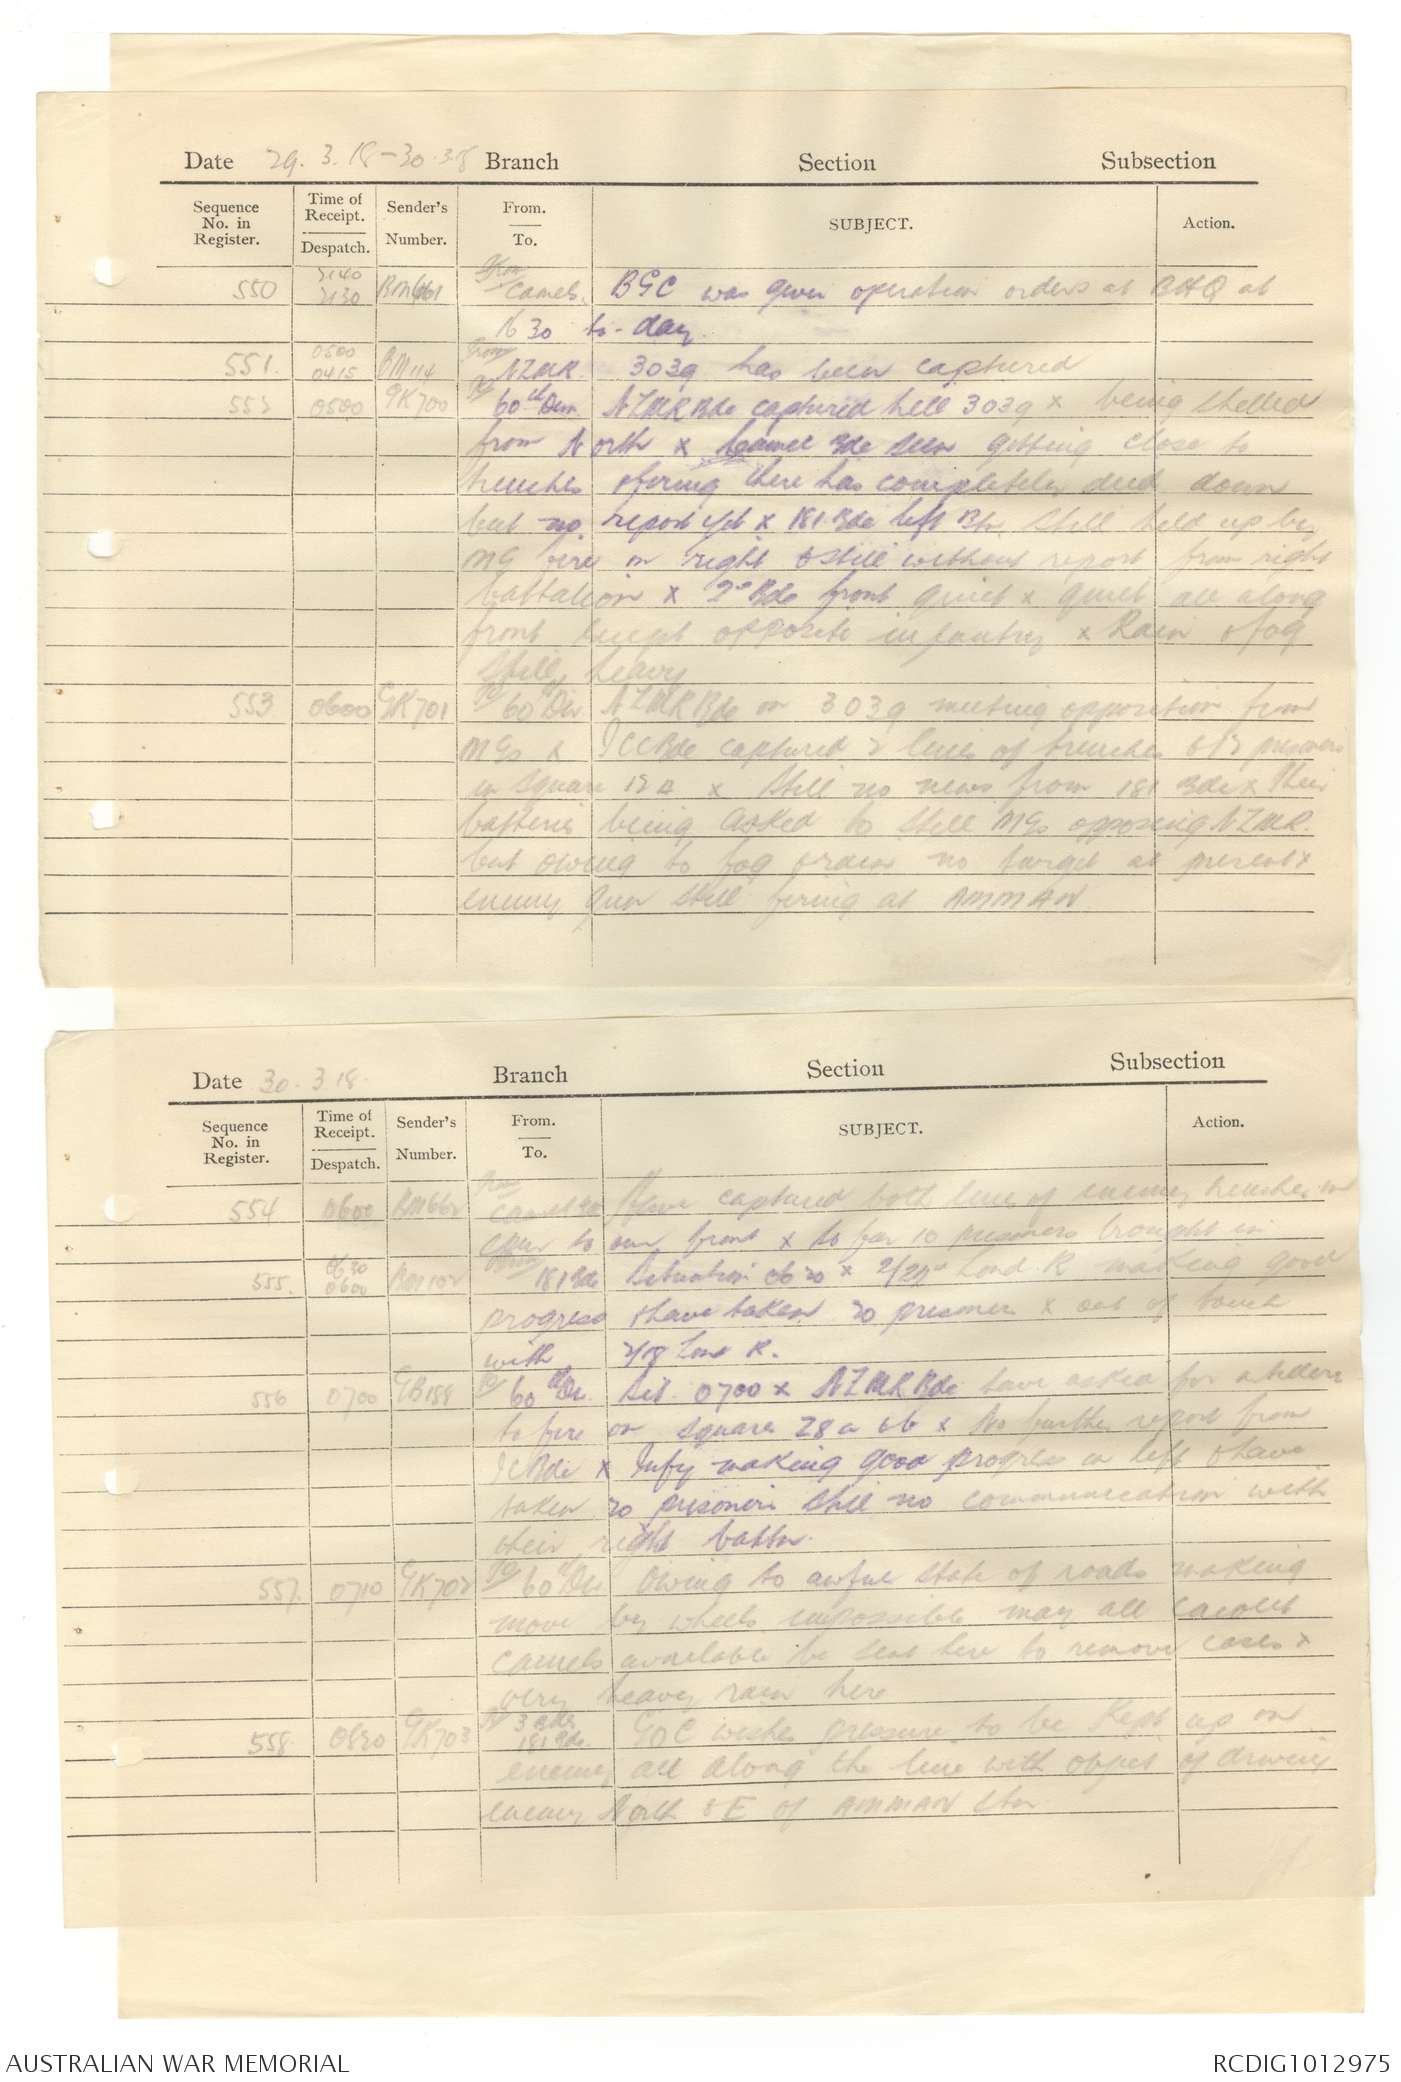 Date 29.3.18-30.3.18 Branch Section Subsection
Sequence No. in Register. Time of Receipt. Despatch. Sender's Number. From. To. SUBJECT. Action.
550 2140 2130 BM661 From Camels. BGC was given operation orders at BHQ at
1630 to-day.
551. 0500 0415 BM114 From NZMR. 3039 has been captured
552 0500 GK700 To 60th Div. NZMR Bde captured hill 3039 x being shelled
from North x Camel Bde seen getting close to
trenches & firing there has completely died down
but no report yet x 181 Bde left Btn. still held up by
MG fire on right & still without report from right
battalion x 2nd Bde front quiet x quiet all along
front except opposite infantry x Rain & fog
still heavy
553 0600 GK701 To 60th Div NZMR Bde on 3039 meeting opposition from
MGs x ICC Bde captured 2 lines of trenches & 12 prisoners
in square 12A x Still no news from 181 Bde x Their
batteries being asked to shell MGs opposing NZMR.
but owing to fog & rain no target at present x
enemy gun still firing at AMMAN
Date 30.3.18. Branch Section Subsection
Sequence No. in Register. Time of Receipt. Despatch. Sender's Number. From. To. SUBJECT. Action.
554 0600 BM662 From Camel Bde Have captured both lines of enemy trenches
to our front x So far 10 prisoners brought in
555. 0630 0600 BM102 From 181 Bde Situation x Lond. R making good
progress & have taken 20 prisoners x out of touch
with 2/18 Lond R.
556 0700 GB188 To 60th Div. Sit. 0700 x NZMR Bde have asked for
to fire on squares 28 a & b x No further report from
IC Bde x Infy making good progress on left & have
taken 20 prisoners still no communication with
their right battn.
557. 0710 GK702 To 60th Div Owing to awful state of roads making
move by wheels impossible may all cacolet
camels available be sent here to remove cases x
very heavy rain here
558 0820 GK703 To 181 Bde. GOC wishes pressure to be kept up on
enemy all along the line with object of driving
enemy North & E of AMMAN Stn.
AUSTRALIAN WAR MEMORIAL RCDIG1012975